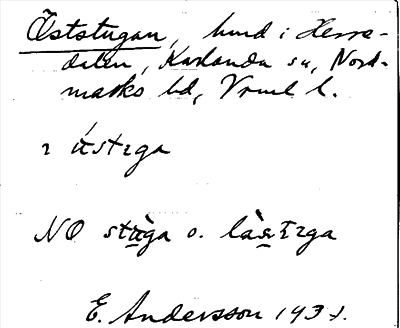 Öststugan, hund i Herre-
dalen, Karlanda sn, Nord-
marks hd, Vrml l.
ɪ ústɪga
NO stùga o. là
E. Andersson 193